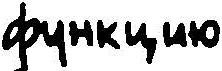 функцию